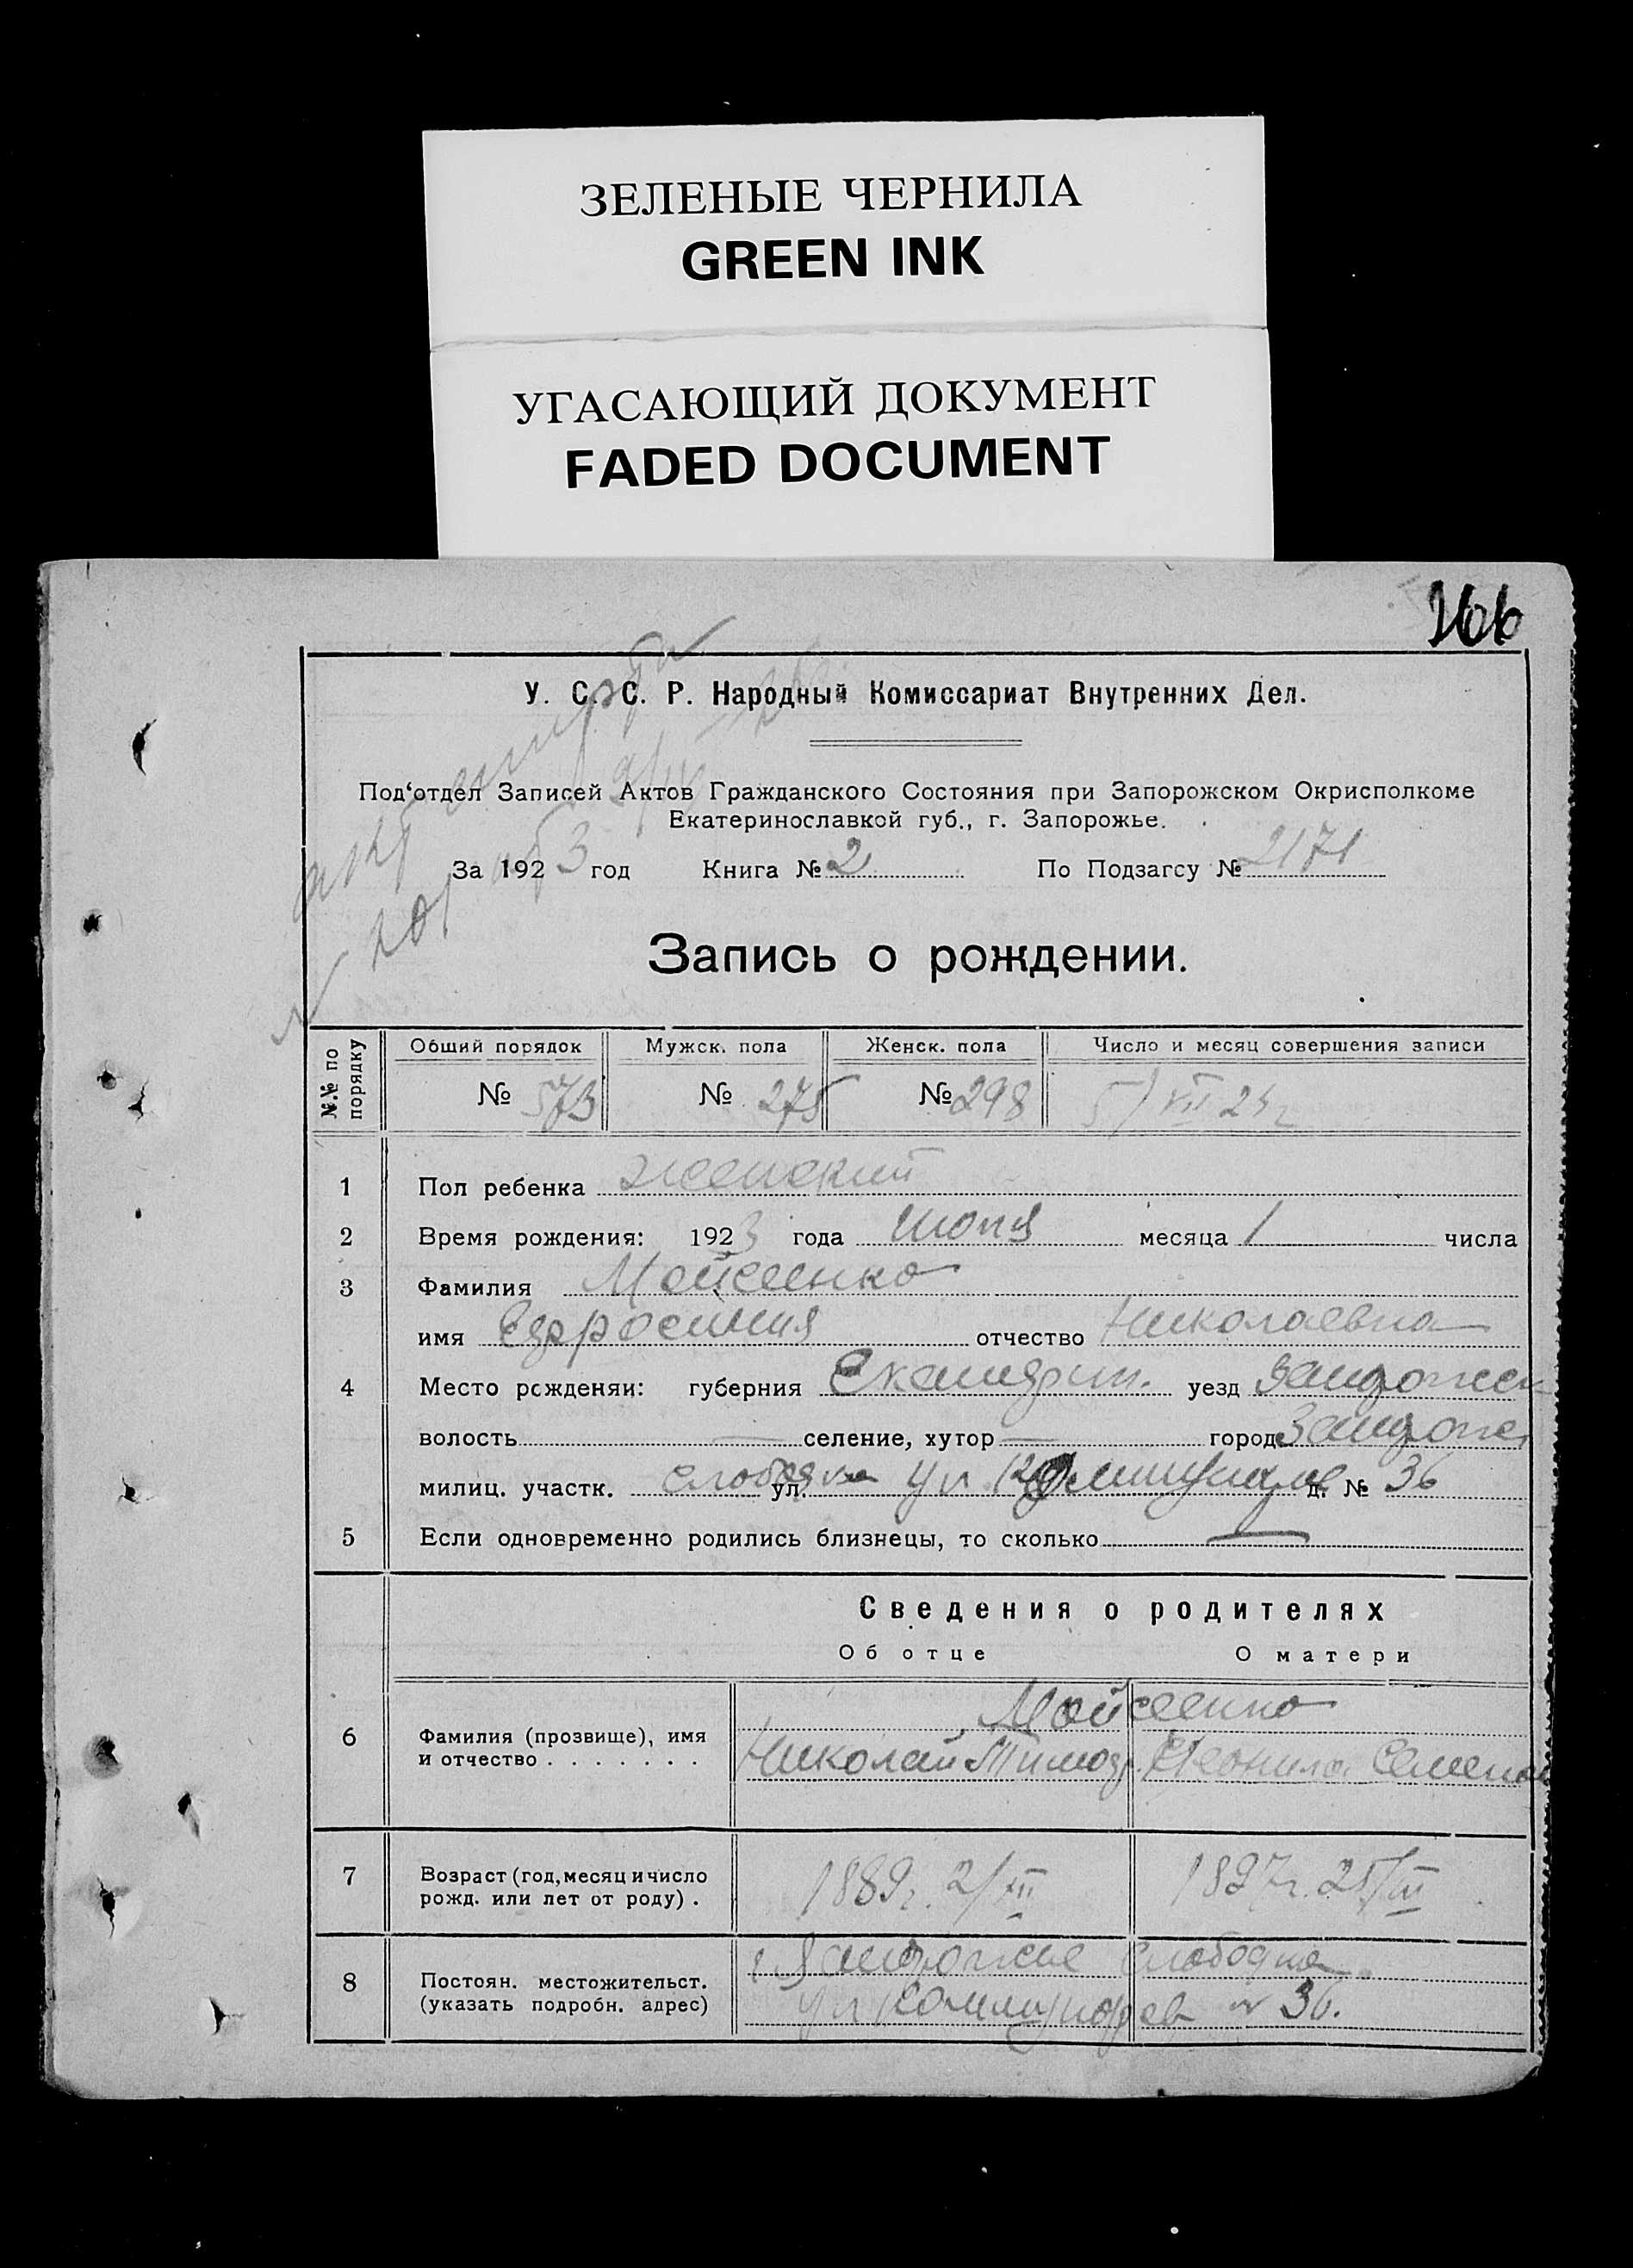 ЗЕЛЕНЫЕ ЧЕРНИЛА
GREEN INK
УГАСАЮЩИЙ ДОКУМЕНТ
FADED DOCUMENT
166
У. С. С. Р. Народный Комиссариат Внутренних Дел.
Под‘отдел Записей Актов Гражданского Состояния при Запорожском Окрисполкоме
Екатеринославкой губ., г. Запорожье.
За 1923 год Книга № 2 По Подзагсу № 2171
Запись о рождении.
№№ по порядку Общий порядок Мужск. пола Женск. пола Число и месяц совершения записи
№ 573 № 275 № 298 5/VII 23 г
1 Пол ребенка женский
2 Время рождения: 1923 года июля месяца 1 числа
3 Фамилия Мойсеенко
имя Ефросиния отчество Николаевна
4 Место рожденяи: губерния уезд Запорожск
волость — селение, хутор — город Запорож
милиц. участк. слободка ул. ул. д. № 36
5 Если одновременно родились близнецы, то сколько —
Сведения о родителях
Об отце О матери
Мойсеенко
6 Фамилия (прозвище), имя Николай Тимоф. Семенов
и отчество . . . . . . .
7 Возраст (год, месяц и число 1889 г. 2/XII 1897 г. 25/III
рожд. или лет от роду) .
г Запорожье Слободка
8 Постоян. местожительст. ул № 36.
(указать подробн. адрес)